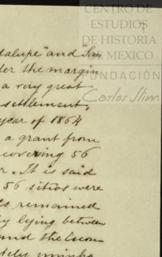 CENTRO DE
ESTUDIOS
DE HISTORIA
DE MEXICO
FUNDACIÓN
Carlos Slim
dalupe" and San
der the margin
a very great
settlement
year of 1864
a grant from
covering 56
r. It is said
56 sitios were
remained
by lying between
and the